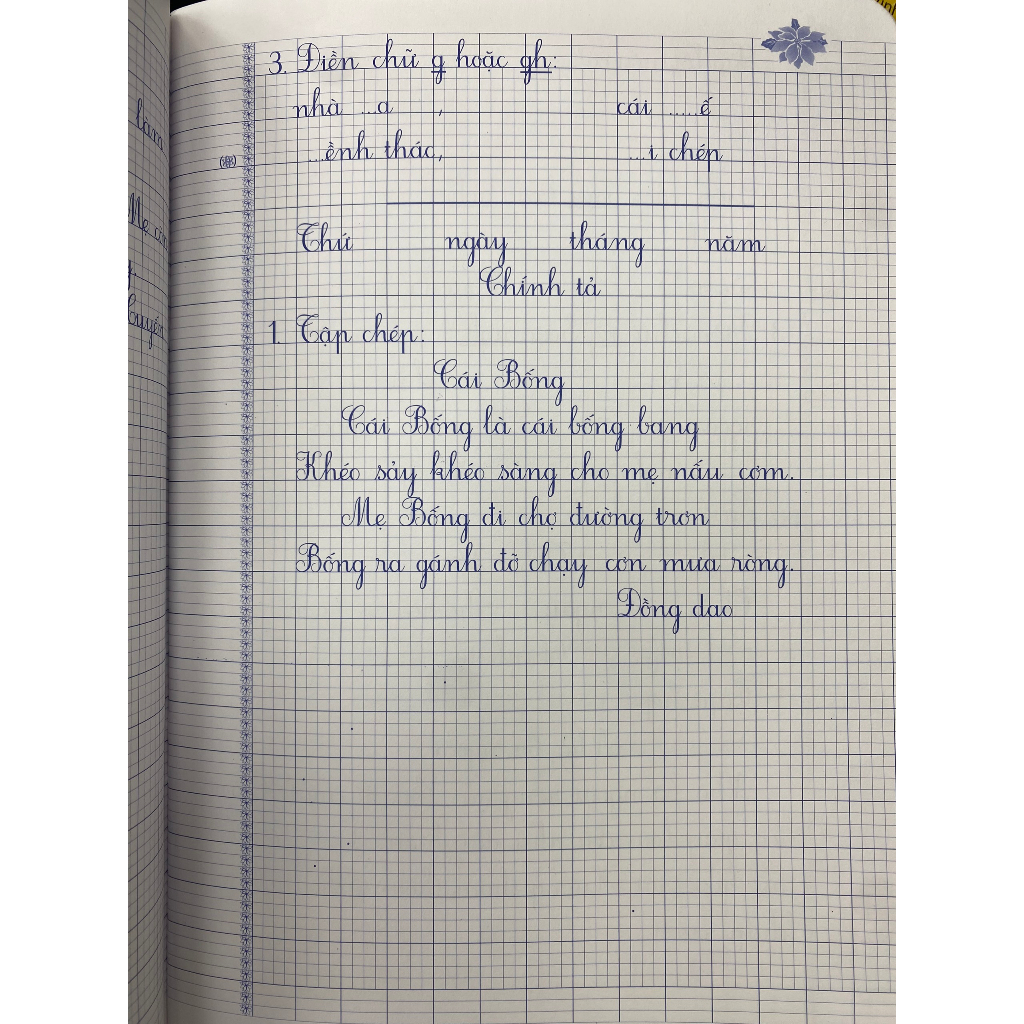 3. Điền chữ g hoặc gh:
nhà ...a , cái .....ế
...ềnh thác, ...i chép
Thứ ngày tháng năm
Chính tả
1. Tập chép:
Cái Bống
Cái Bống là cái bống bang
Khéo sảy khéo sàng cho mẹ nấu cơm.
Mẹ Bống đi chợ đường trơn
Bống ra gánh đỡ chạy cơn mưa ròng.
Đồng dao
làm
Mẹ